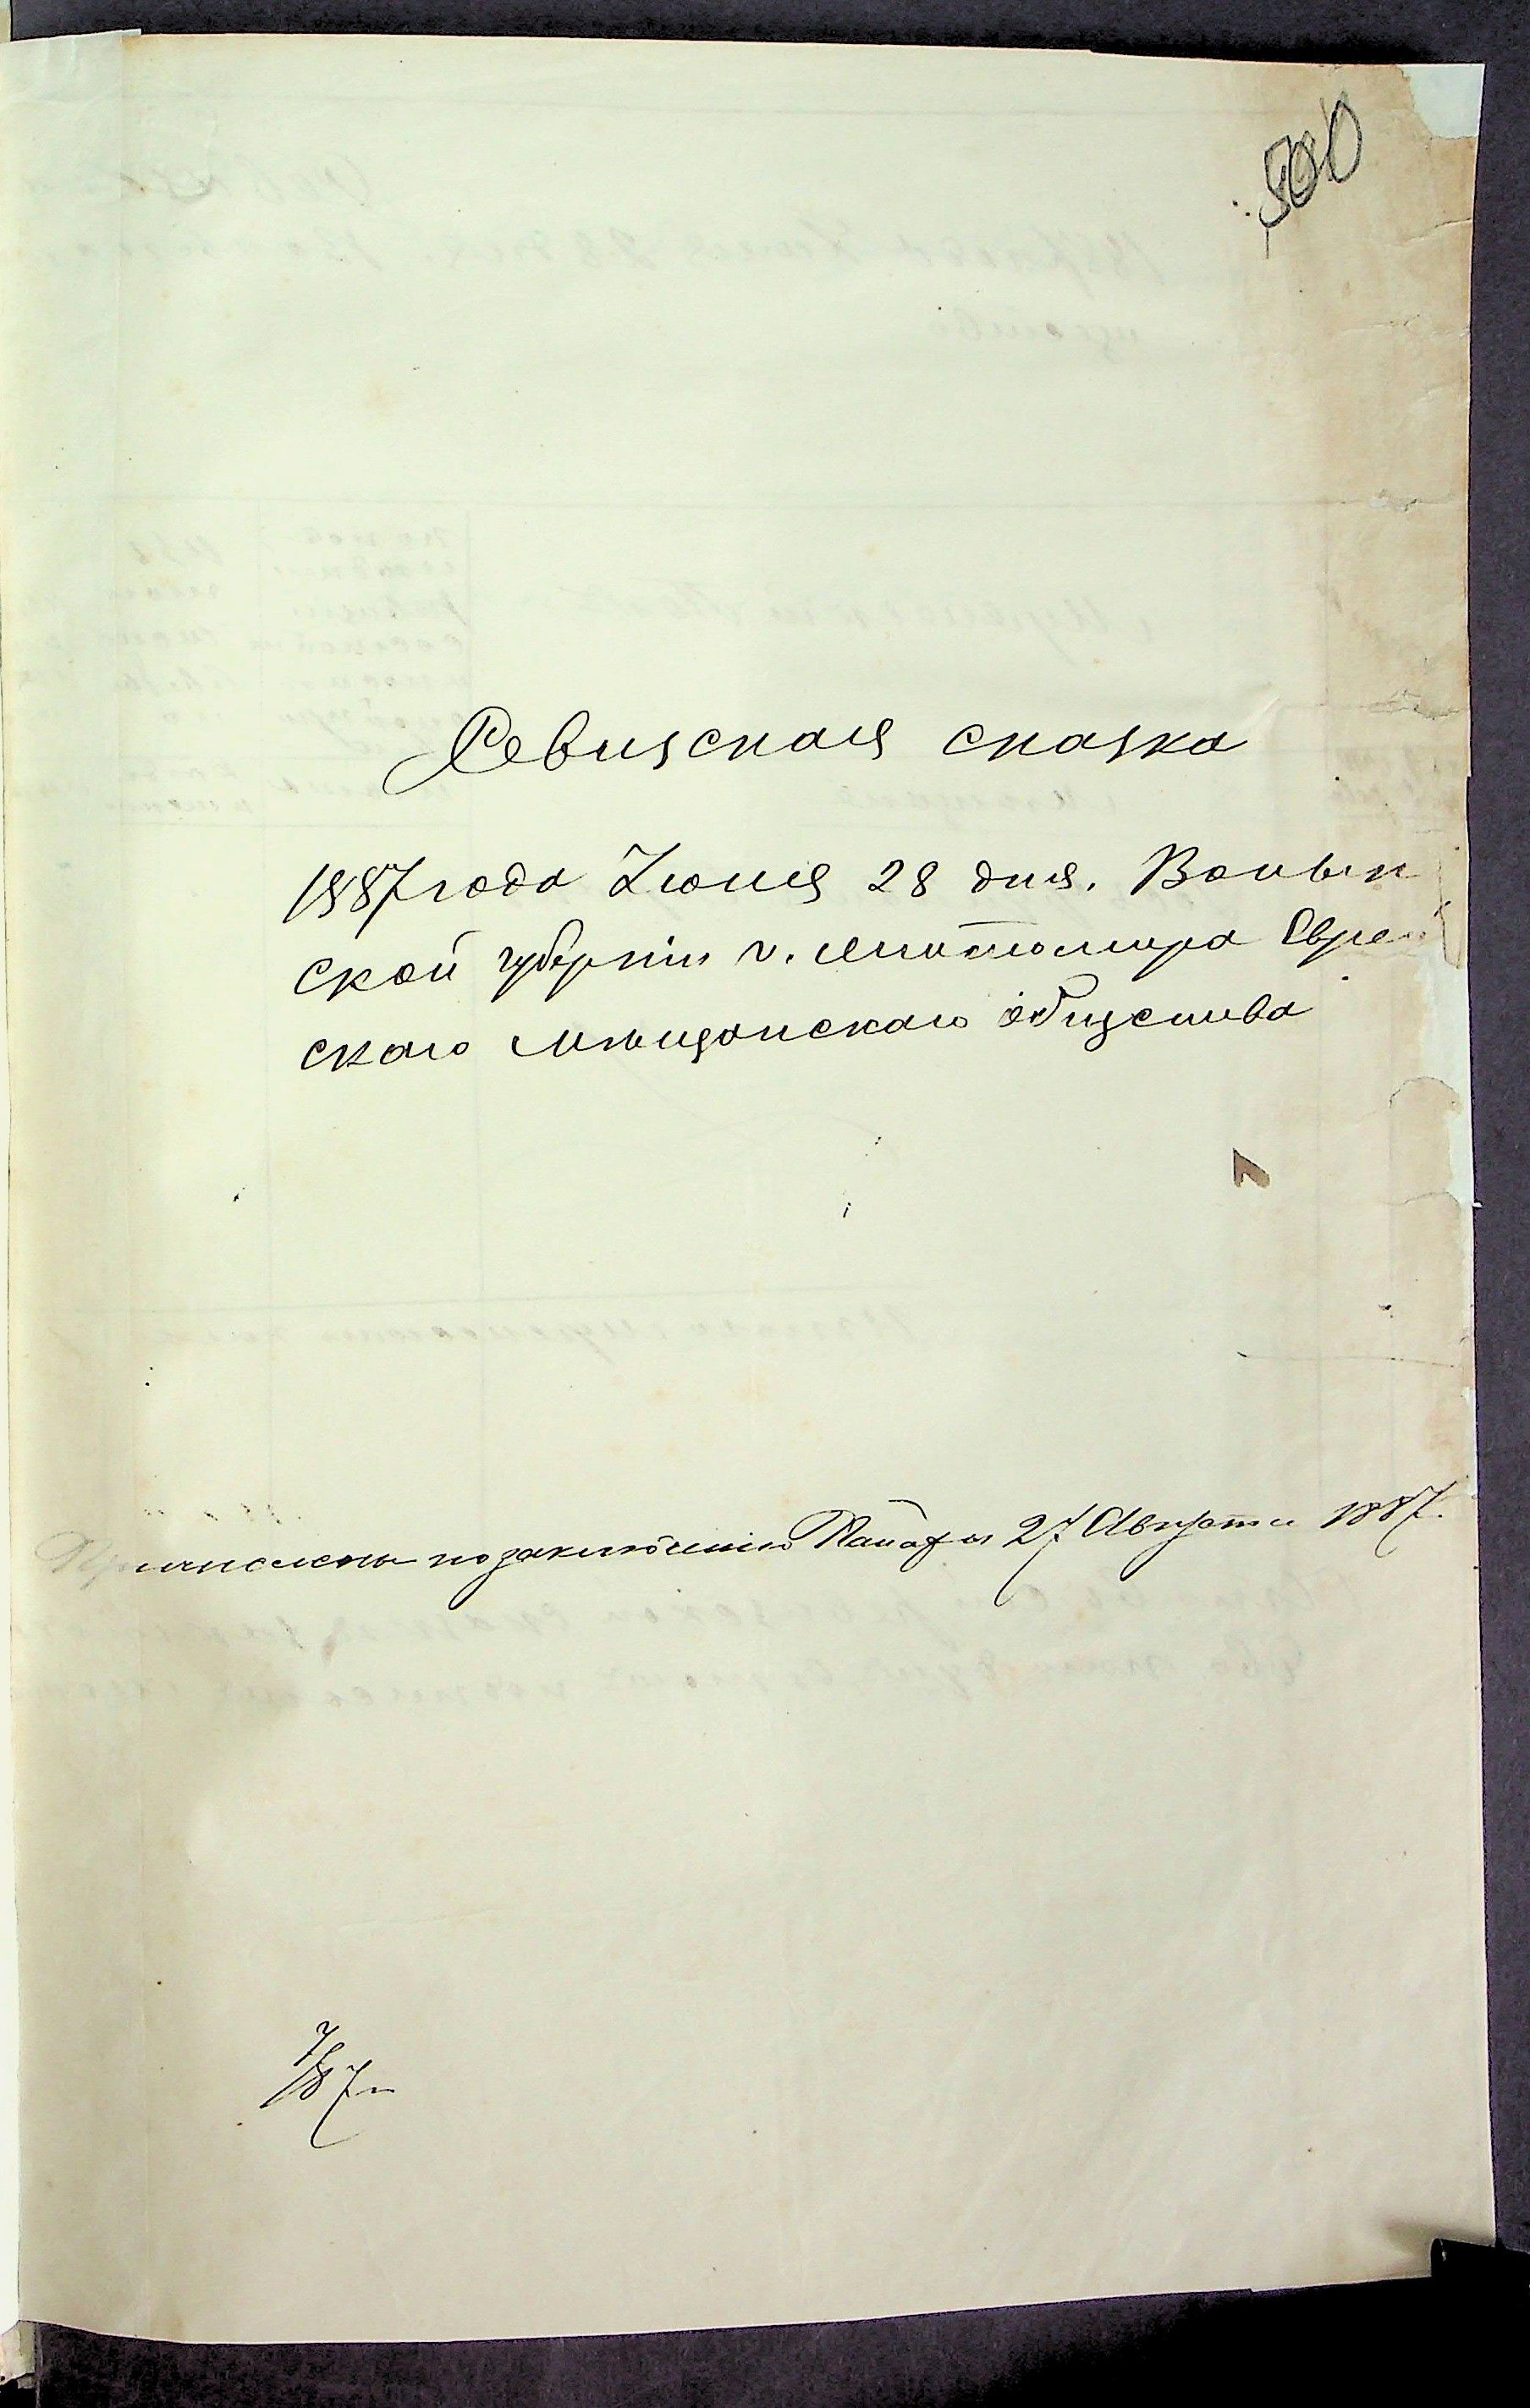 500
Ревизская сказка
1887 года Июня 28 дня. Волын
ской губерніи г. Житомира Еврей
скаго мѣщанскаго общества
Причислены по заключенію Палаты 27 Августа 1887.
7/87